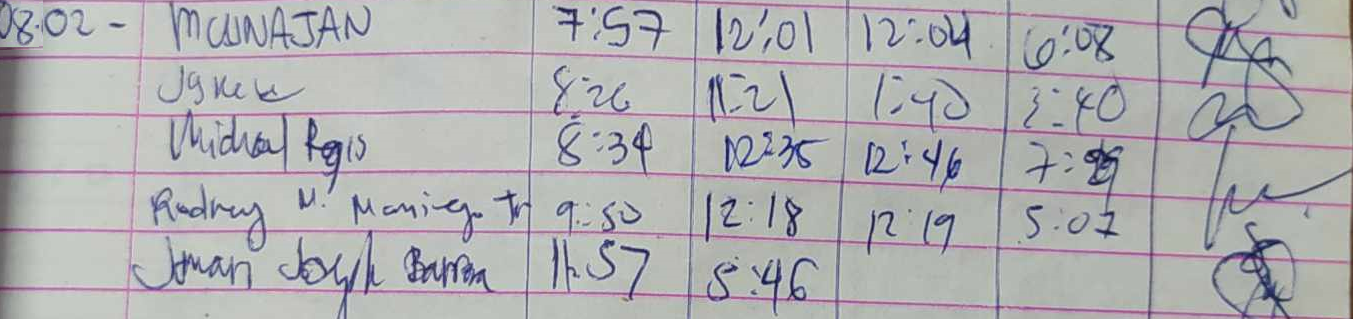 08.02 - MCUNAJAN 7:57 12:01 12:04 6:08
8:26 11:21 1:40 3:40
Michael Regis 8:34 12:35 12:46 7:
Rodney M. Maniego Jr 9:50 12:18 12:19 5:07
Joseph 11:57 5:46